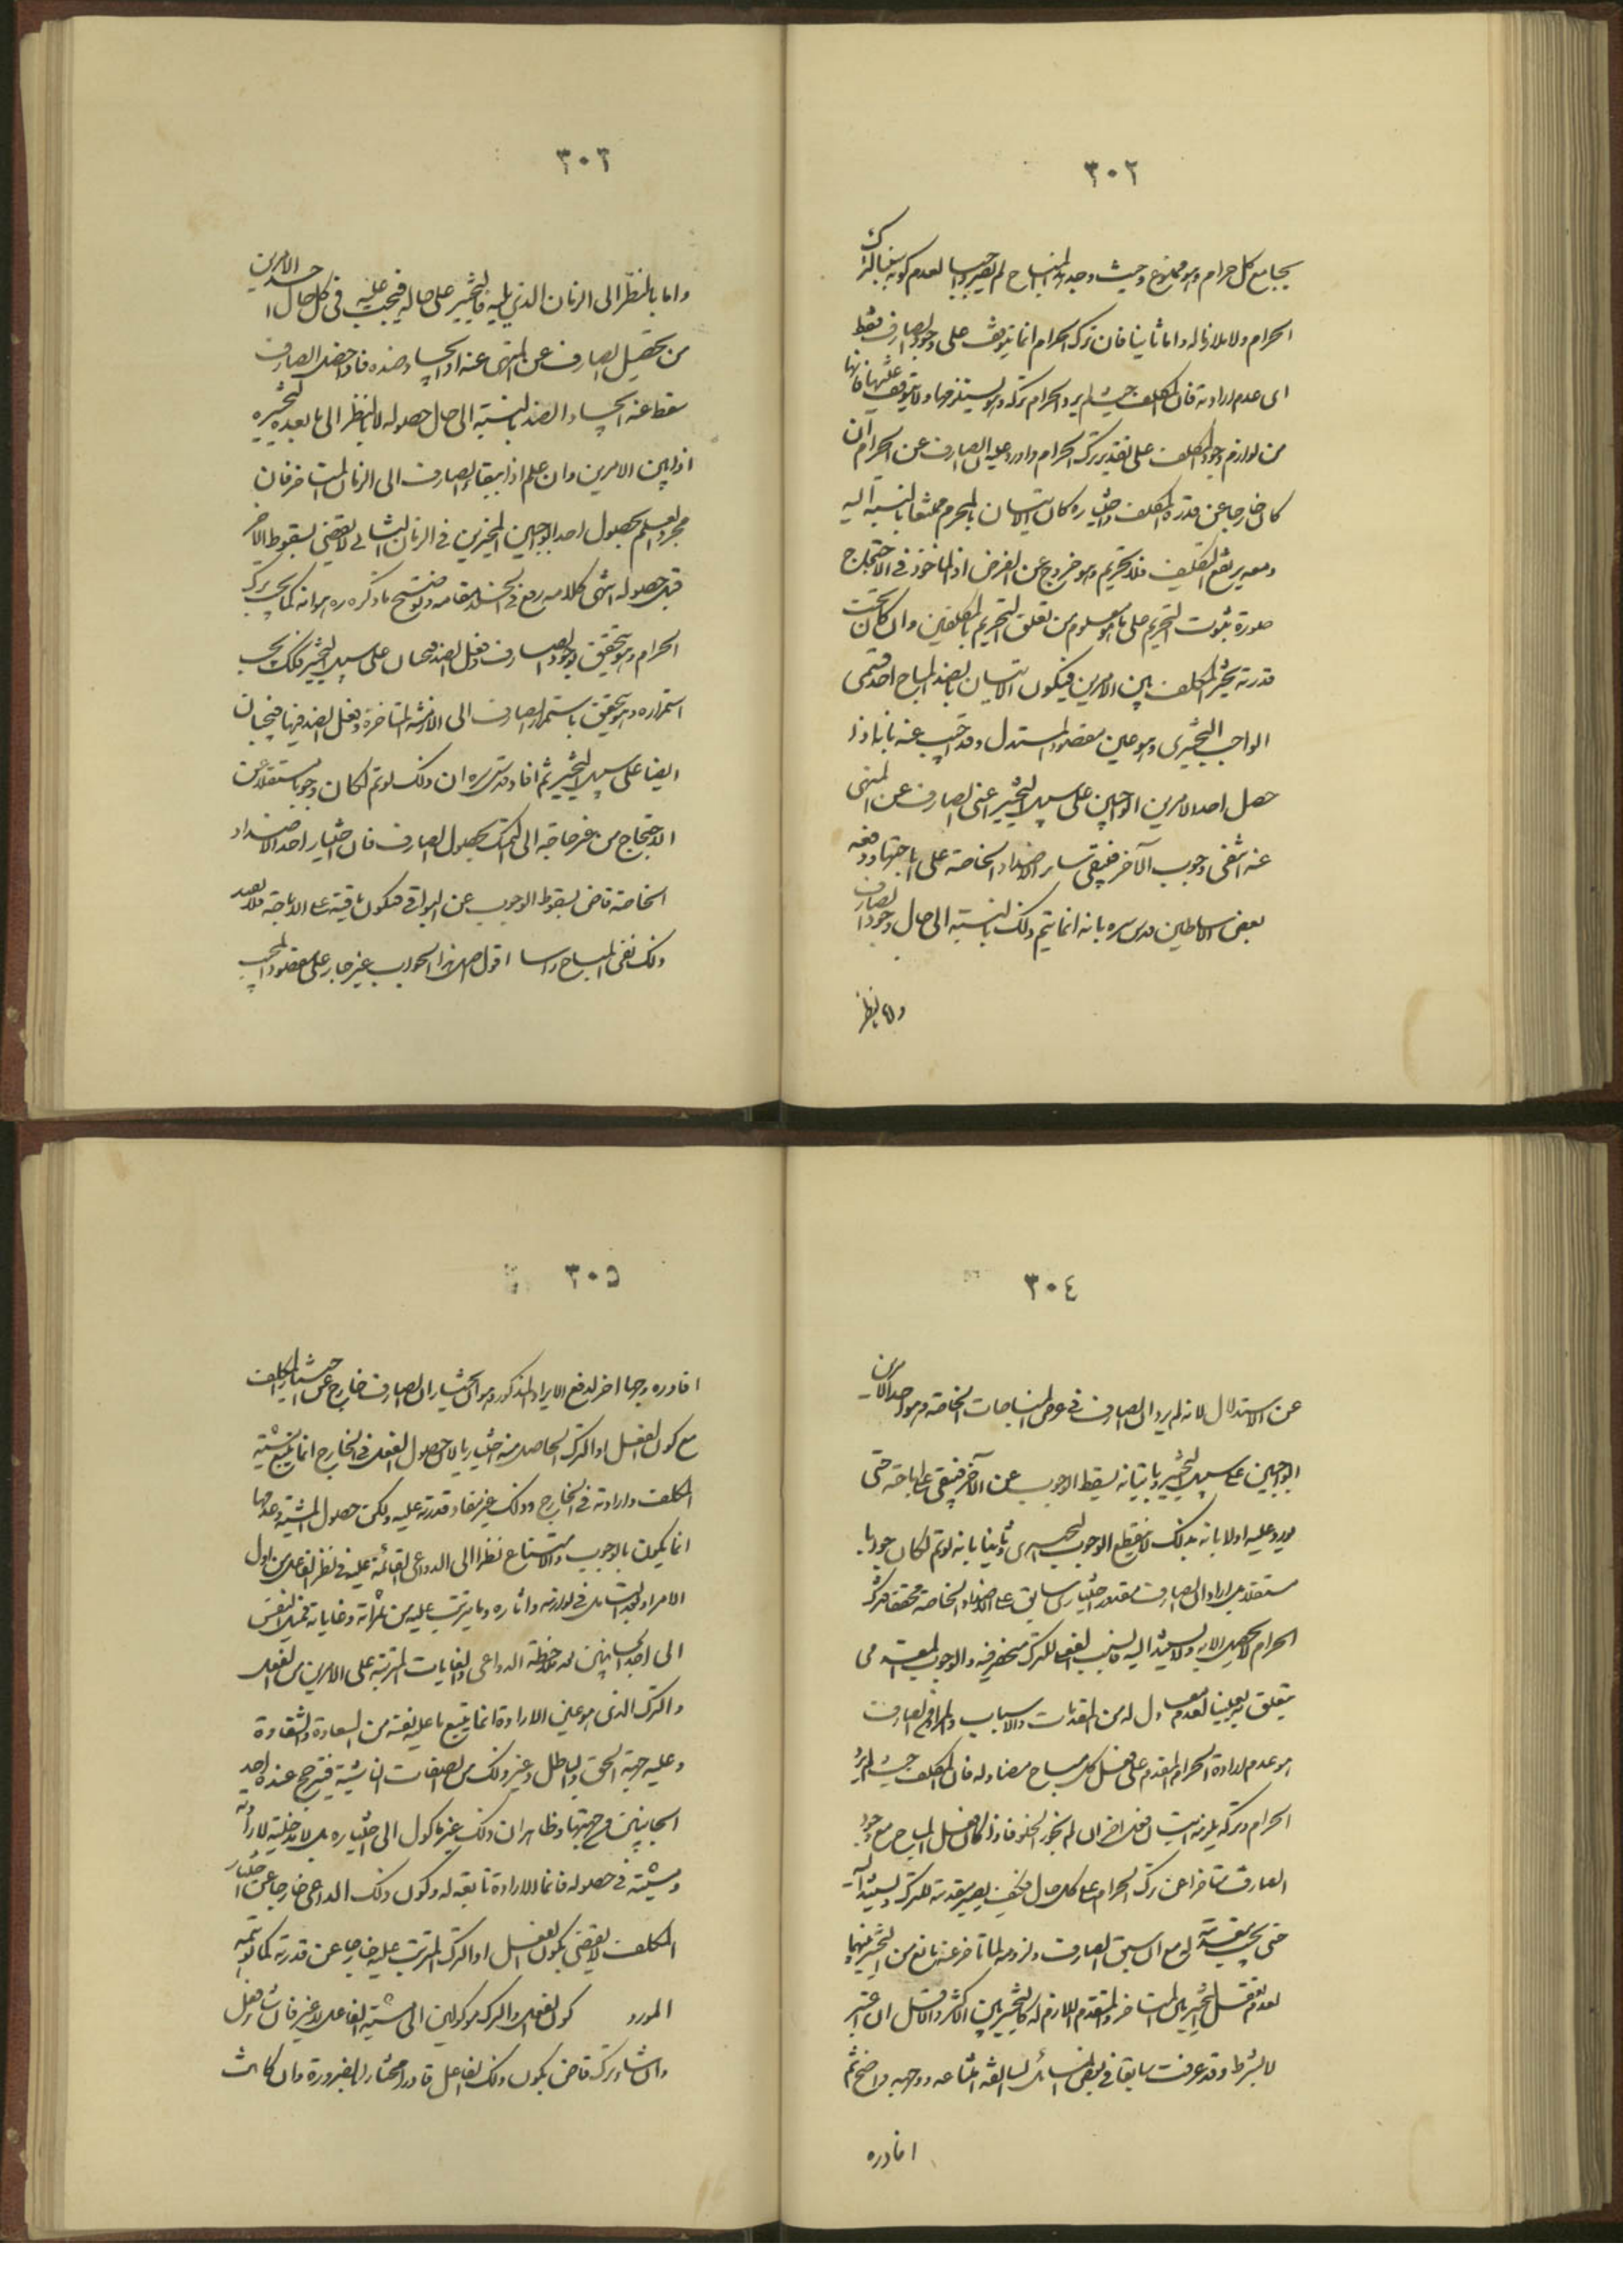 ٣٠٢
يجامع كل حرام وهو ممنوع وحيث وجد المباح لم يصر واجبا لعدم كونه
الحرام ولا ملازما له واما ثانيا فان ترك الحرام انما يتوقف على وجود الصارف فقط
اى عدم ارادته فان المكلف حيث لم يرد الحرام تركه ولا يتوقف عليها فانها
من لوازم وجود المكلف على تقدير ترك الحرام واورد عليه ان الصارف عن الحرام ان
كان خارجا عن قدرة المكلف واختياره كان الاتيان بالمحرم ممتنعا بالنسبة اليه
ومعه يرتفع التكليف فلا تحريم وهو خروج عن الفرض اذ الماخوذ فى الاحتجاج
صورة ثبوت التحريم على ما هو معلوم من تعلق التحريم بالمكلفين وان كان تحت
قدرته تخير المكلف بين الامرين فيكون الاتيان بالضد المباح احد قسمى
الواجب التخييرى وهو عين مقصود المستدل وقد اجيب عنه بانه اذا
حصل احد الامرين الواجبين على سبيل التخيير اعنى الصارف عن المنهى
عنه انتفى وجوب الآخر فيبقى ساير الاضداد الخاصة على اباحتها ودفعه
بعض الاساطين قدس سره بانه انما يتم ذلك بالنسبة الى حال وجود الصارف
واما بالنظر
٣٠٣
واما بالنظر الى الزمان الذى يليه فالتخيير على حاله فيجب عليه فى كل حال احد الامرين
من تحصيل الصارف عن المنهى عنه او ايجاد ضده فاذا حصل الصارف
سقط عنه ايجاد الضد بالنسبة الى حال حصوله لا بالنظر الى ما بعده لتخييره
اذا بين الامرين وان علم اذا ببقاء الصارف الى الزمان المتاخر فان
مجرد العلم بحصول احد الواجبين المخيرين فى الزمان الثانى لا يقتضى بسقوط الآخر
قبل حصوله انتهى كلامه رفع فى الخلد مقامه وتوضيح ما ذكره ره هو انه كما يجب ترك
الحرام وهو يتحقق بوجود الصارف وفعل الضد فيجبان على سبيل التخيير فكذلك يجب
استمراره وهو يتحقق باستمرار الصارف الى الازمنة المتاخرة وفعل الضد فيها فيجبان
ايضا على سبيل التخيير ثم افاد قدس سره ان ذلك لو تم لكان وجها مستقلا عن
الاحتجاج من غير حاجة الى التمسك بحصول الصارف فان اختيار احد الاضداد
الخاصة قاض بسقوط الوجوب عن البواقى فيكون باقية على الاباحة فلا يفيد
ذلك نفى المباح راسا اقول اصل هذا الجواب غير جار على مقصود المجيب
٣٠٤
عن الاستدلال لانه لم يرد ان الصارف فى عرض المباحات الخاصة وهو احد الامرين
الواجبين على سبيل التخيير وباتيانه يسقط الوجوب عن الآخر فيبقى على اباحته حتى
يورد عليه اولا بانه بذلك لا ينقطع الوجوب التخييرى وثانيا بانه لو تم لكان جوابا
مستقلا بل اراد ان الصارف مقدور اختيارى سابق على الاضداد الخاصة محققا فترك
الحرام لا يحصل الا به ولا يستند الا اليه فالسبب الفعلى للترك منحصر فيه والوجوب المقدمى
يتعلق به تعيينا لعدم معادل له من المقدمات والاسباب والمراد بالصارف
هو عدم ارادة الحرام المقدم على فعل كل مباح مضاد له فان المكلف حيث لم يرد
الحرام وتركه يلزمه اتيان فعل آخر ان لم نجوز الخلو فاذا كان فعل المباح مع وجود
الصارف متاخرا عن ترك الحرام على كل حال فكيف يصير مقدمة للترك ويستند اليه
حتى يجب مقدمة له مع ان سبق الصارف ولزومه لما تاخر عنه مانع من التخيير بينهما
لعدم تعقل التخيير بين المتاخر والمتقدم اللازم له كالتخيير بين الاكثر والاقل ان اعتبر
لا بشرط وقد عرفت سابقا فى بعض المسائل السالفة امتناعه ووجهه واضح ثم
افاد ره
٣٠٥
افاد ره وجها آخر لدفع الايراد المذكور وهو ان اختيار ان الصارف خارج عن اختيار المكلف
مع كون الفعل او الترك الحاصل منه اختياريا لان حصول الفعل فى الخارج انما يتبع مشية
المكلف وارادته فى الخارج وذلك غير مفاد قدرته عليه ولكن حصول المشية وعدمها
انما يكون بالوجوب والامتناع نظرا الى الدواعى القائمة عليه فى نظر الفاعل من اول
الامر او بعد التامل فى لوازمه وآثاره وما يترتب عليه من ثمراته وغاياته فميل النفس
الى احد الجانبين بعد ملاحظة الدواعى والغايات المترتبة على الامرين من الفعل
والترك الذى هو عين الارادة انما يتبع ما عليه نفسه من السعادة والشقاوة
وعليه جهة الحق والباطل وغير ذلك من الصفات الناشئة فيترجح عنده احد
الجانبين من جهتها وظاهر ان ذلك غير ماكول الى اختياره بل لا مدخلية لارادته
ومشيته فى حصوله فانما الارادة تابعة له وكون ذلك الداعى خارجا عن اختيار
المكلف لا يقتضى بكون الفعل او الترك المترتب عليه خارجا عن قدرته كما توهمه
المورد كون الفعل والترك موكولين الى مشية الفاعل لا غير فان شاء فعل
وان شاء ترك قاض بكون ذلك الفاعل قادرا مختارا بالضرورة وان كانت